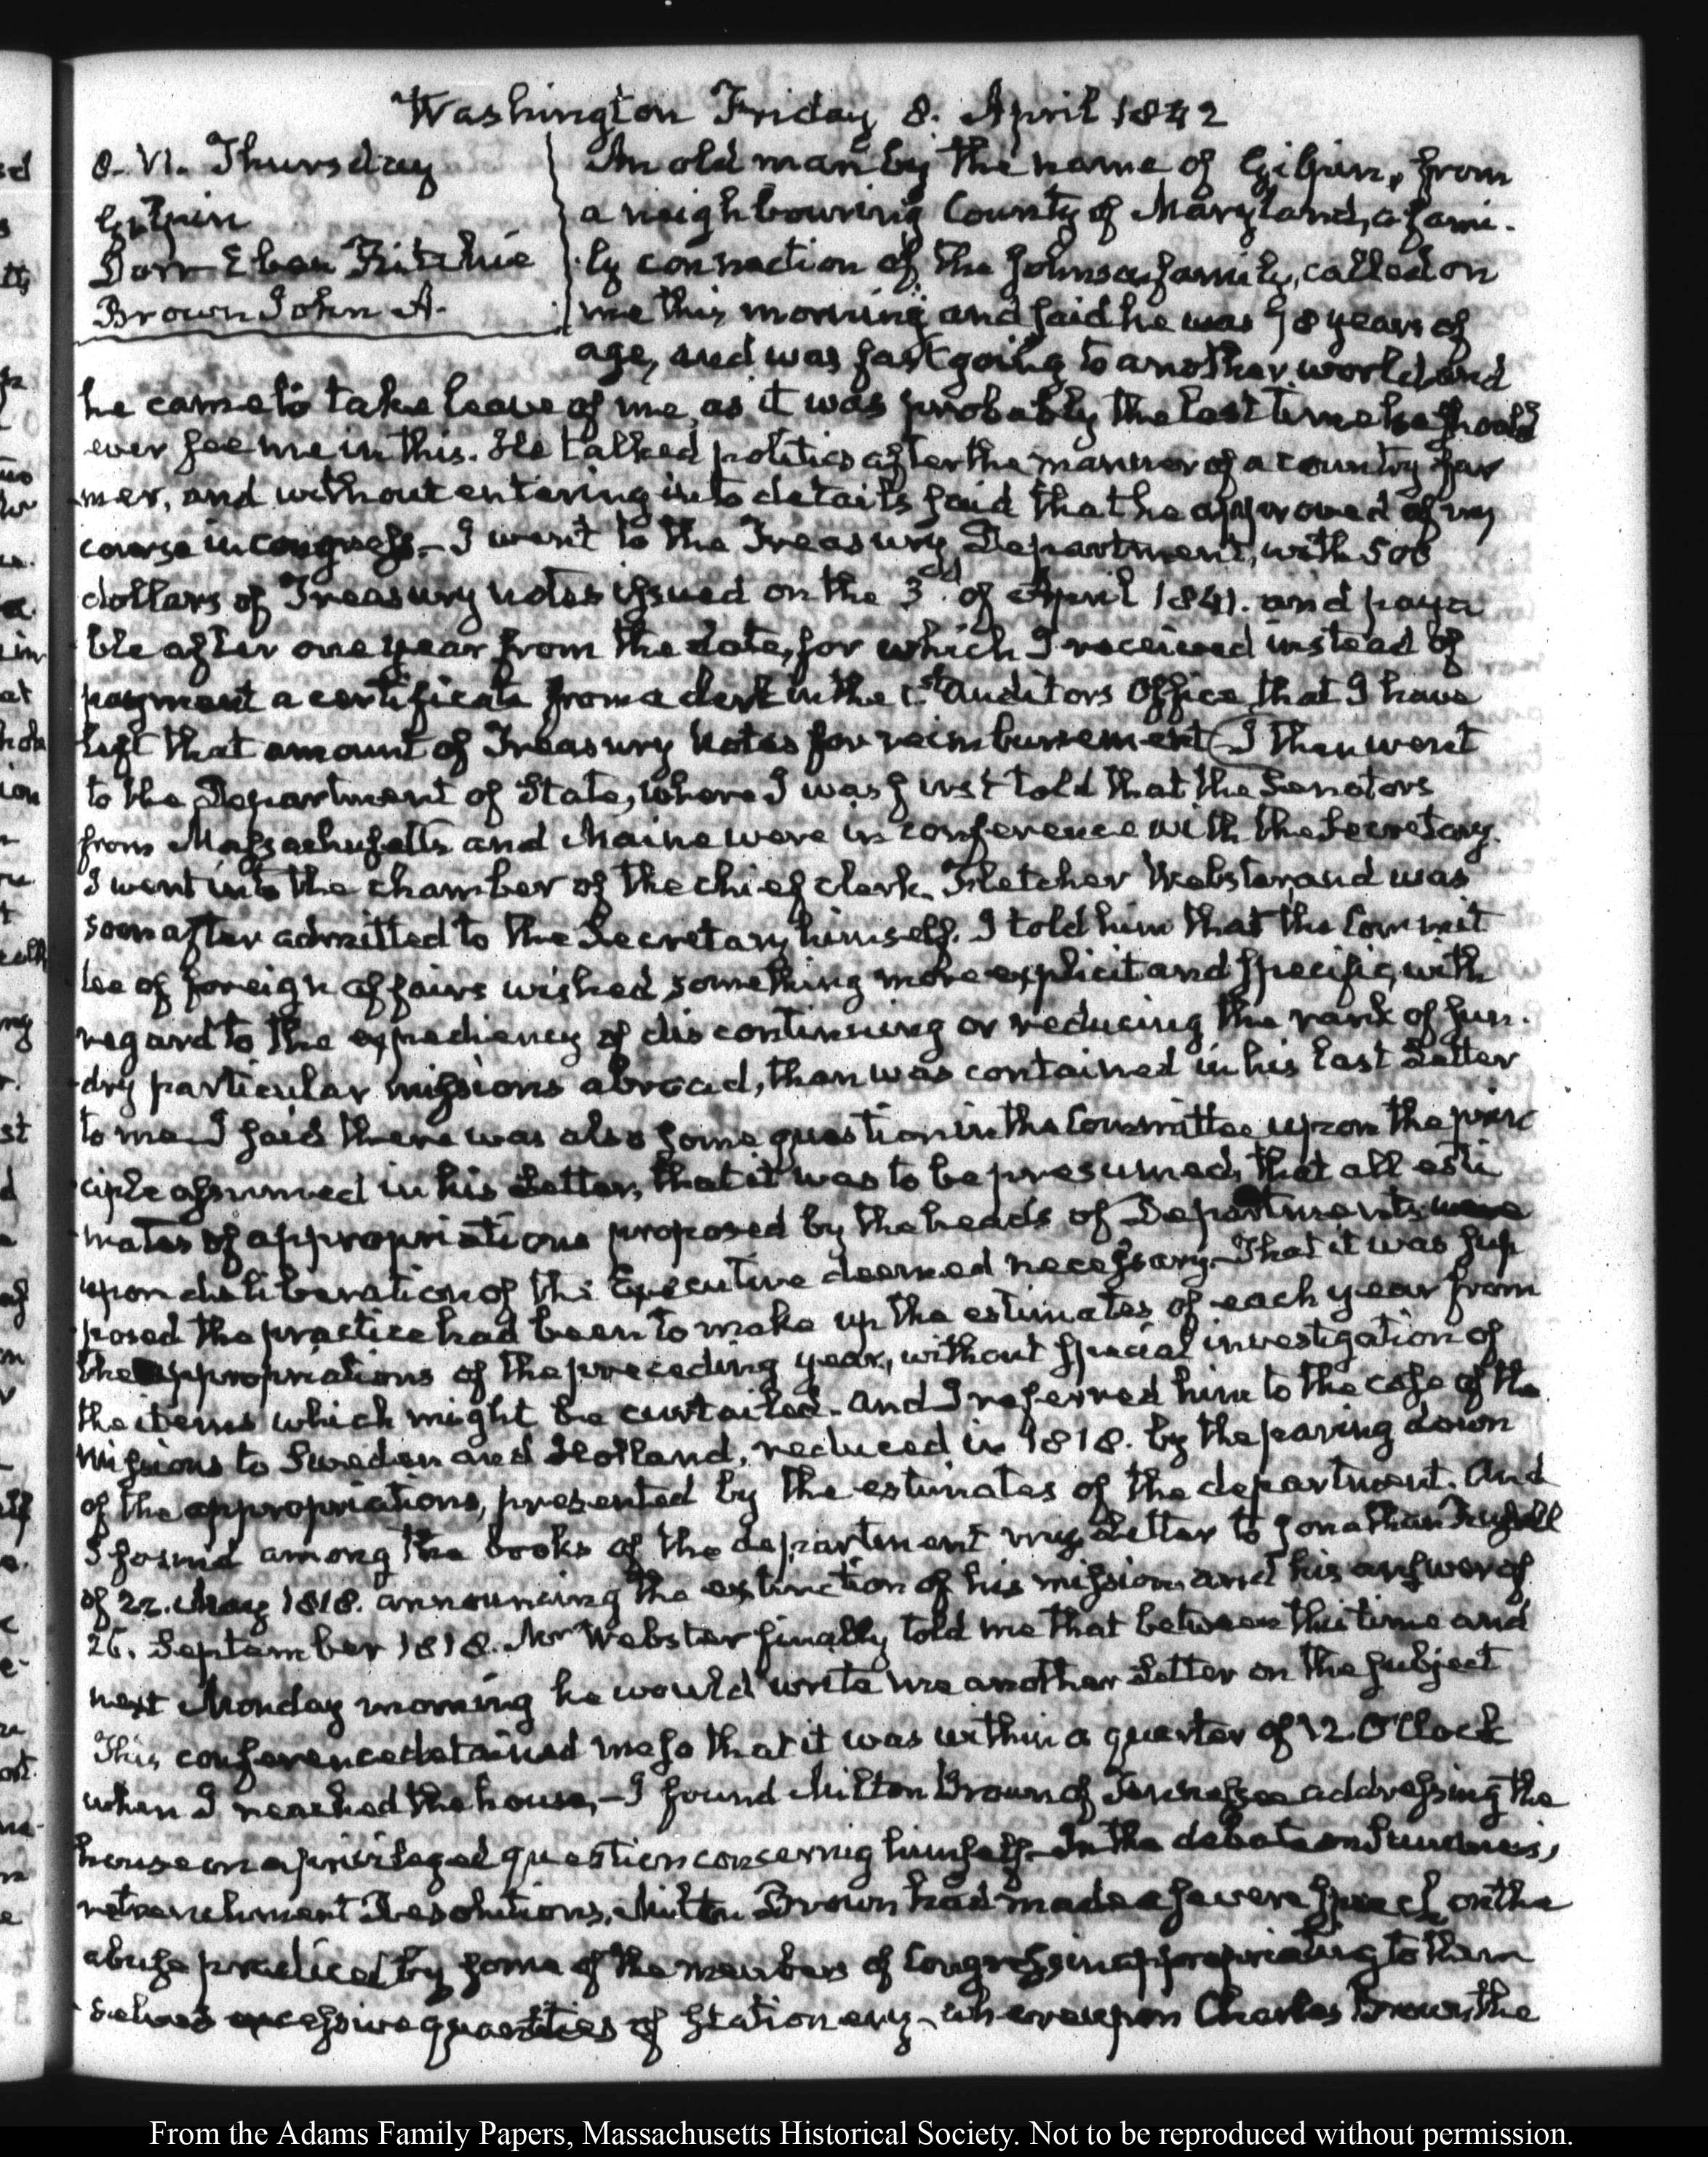 Washington Friday 8. April 1842
8. VI. Thursday
Gilpin
Dorr Eben Ritchie
Brown John A.
An old man by the name of Gilpin, from
a neighbouring County of Maryland, a fami-
ly connection of the Johnson family, called on
me this morning and said he was 78 years of
age, and was fast going to another world and
he came to take leave of me, as it was probably the last time he should
ever see me in this. He talked politics after the manner of a country far
mer, and without entering into details said that he approved of my
course in congress.- I went to the Treasury Department, with 500
dollars of Treasury notes issued on the 3d. of April 1841. and paya
ble after one year from the date, for which I received instead of
payment a certificate from a clerk in the 1.st Auditors Office that I have
left that amount of Treasury Notes for reimbursement (I then went
to the Department of State, where I was first told that the Senators
from Massachusetts and Maine were in conference with the Secretary.
I went into the chamber of the chief clerk. Fletcher Webster, and was
soon after admitted to the Secretary himself. I told him that the Commit
tee of foreign affairs wished something more explicit and specific, with
regard to the expediency of discontinuing or reducing the rank of sun-
dry particular missions abroad, than was contained in his last Letter
to me. I said there was also some question in the Committee upon the prin
ciple assumed in his Letter, that it was to be presumed, that all esti
mates of appropriations proposed by the heads of Departments were
upon deliberation of the Executive deemed necessary. That it was sup
posed the practice had been to make up the estimates of each year from
the appropriations of the preceding year, without special investigation of
the items which might be curtailed. and I referred him to the case of the
missions to Sweden and Holland, reduced in 1818. by the paring down
of the appropriations, presented by the estimates of the department. And
I found among the books of the department my Letter to Jonathan Russell
of 22. May 1818. announcing the extinction of his mission and his answer of
26. September 1818. Mr Webster finally told me that between this time and
next Monday morning he would write me another Letter on the subject
This conference detained me so that it was within a quarter of 12. O'Clock
when I reached the house,- I found Milton Brown of Tennessee addressing the
house on a privileged question concernig himself. In the debate on Summers's
retrenchment Resolutions, Milton Brown had made a severe speech, on the
abuse practiced by some of the members of Congress in appropriating to them
selves excessive quantities of stationery, whereupon Charles Brown, the